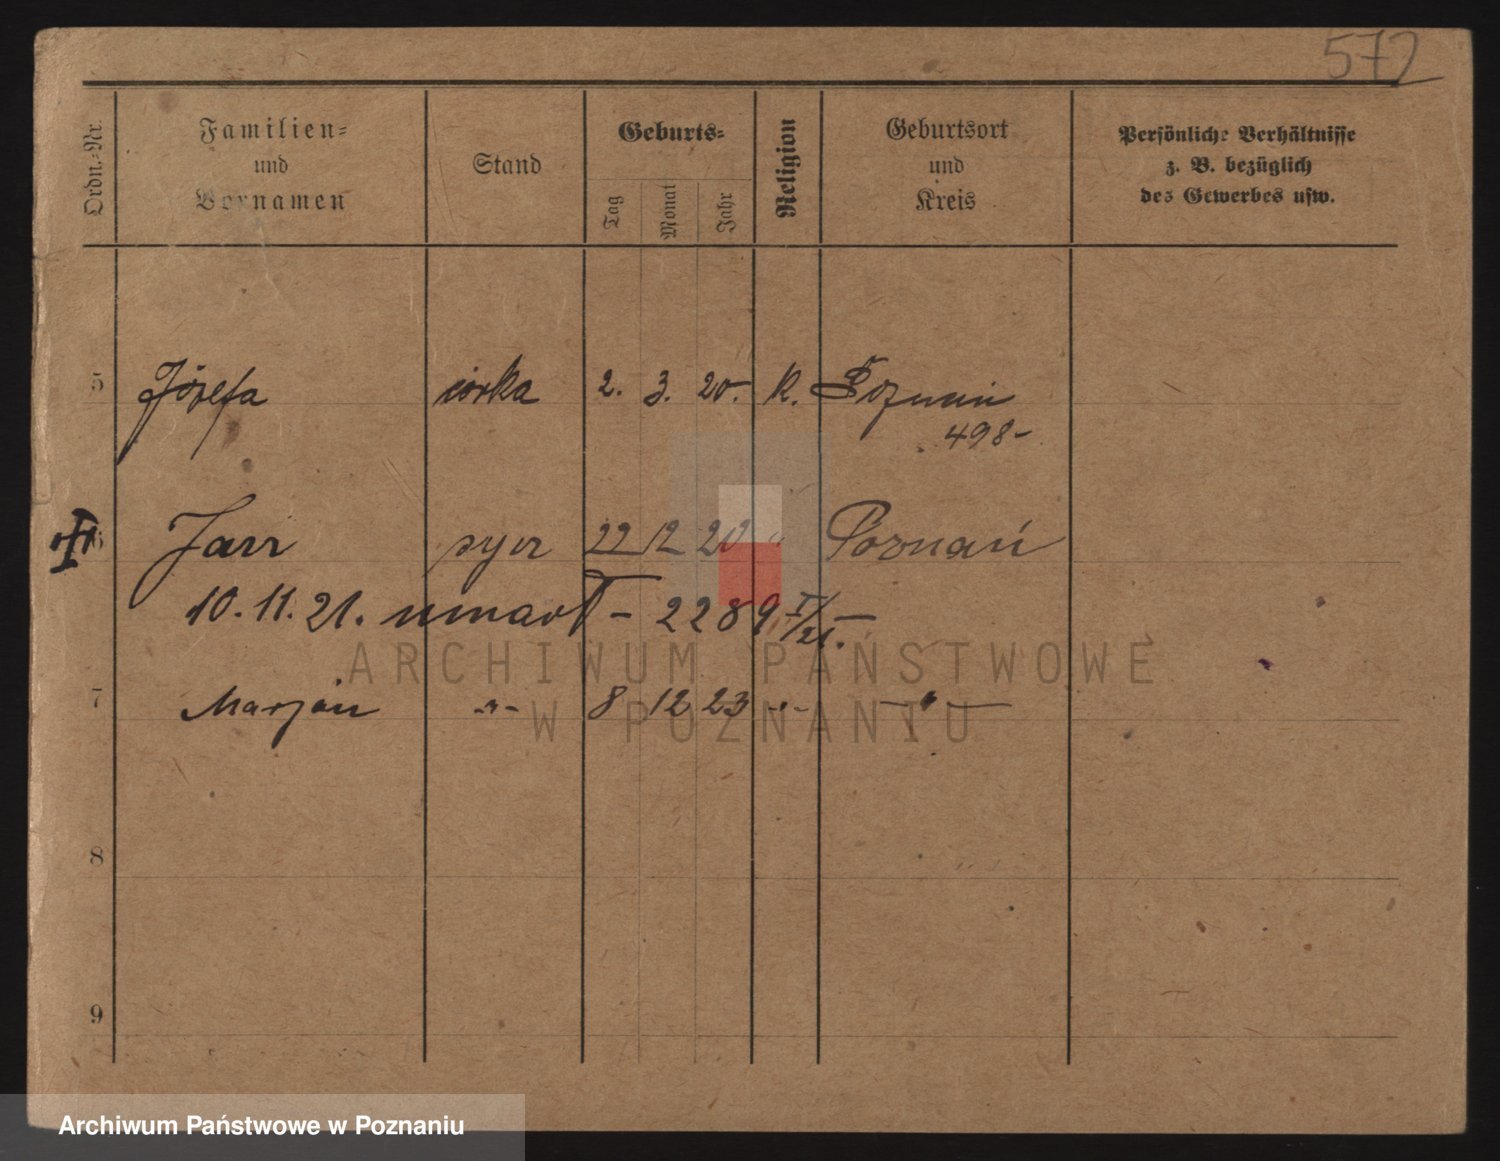 572
Ordn.-Nr.
Familien-
und
Vornamen
Stand
Geburts-
Tag
Monat
Jahr
Religion
Geburtsort
und
Kreis
Persönliche Verhältnisse
z. B. bezüglich
des Gewerbes usw.
5 Józefa córka 2. 3. 20. K. Poznań
498-
6 Jan syn 22 12 20 " Poznań
10. 11. 21. umarł - 2289 I/21.
ARCHIWUM PAŃSTWOWE
7 Marjan -"- 8 12 23 -"- -"-
W POZNANIU
8
9
Archiwum Państwowe w Poznaniu